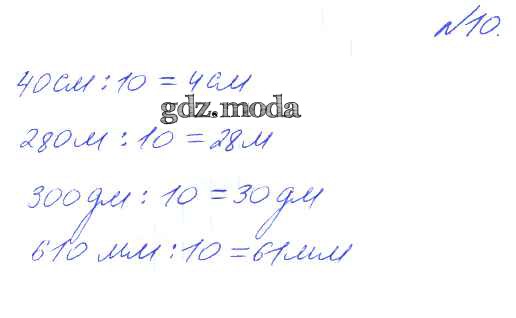 №10.
40см : 10 = 4см
gdz.moda
280м : 10 = 28м
300дм : 10 = 30дм
610 мм : 10 = 61мм